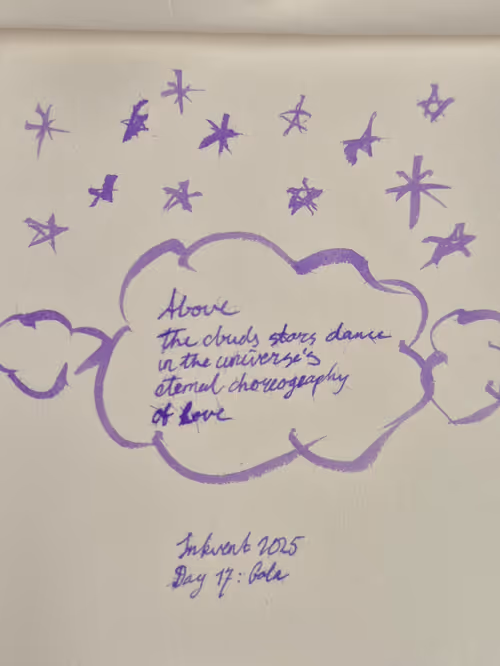 Above
the clouds stars dance
in the universe's
eternal choreography
of Love
Inkvent 2025
Day 17: Gala